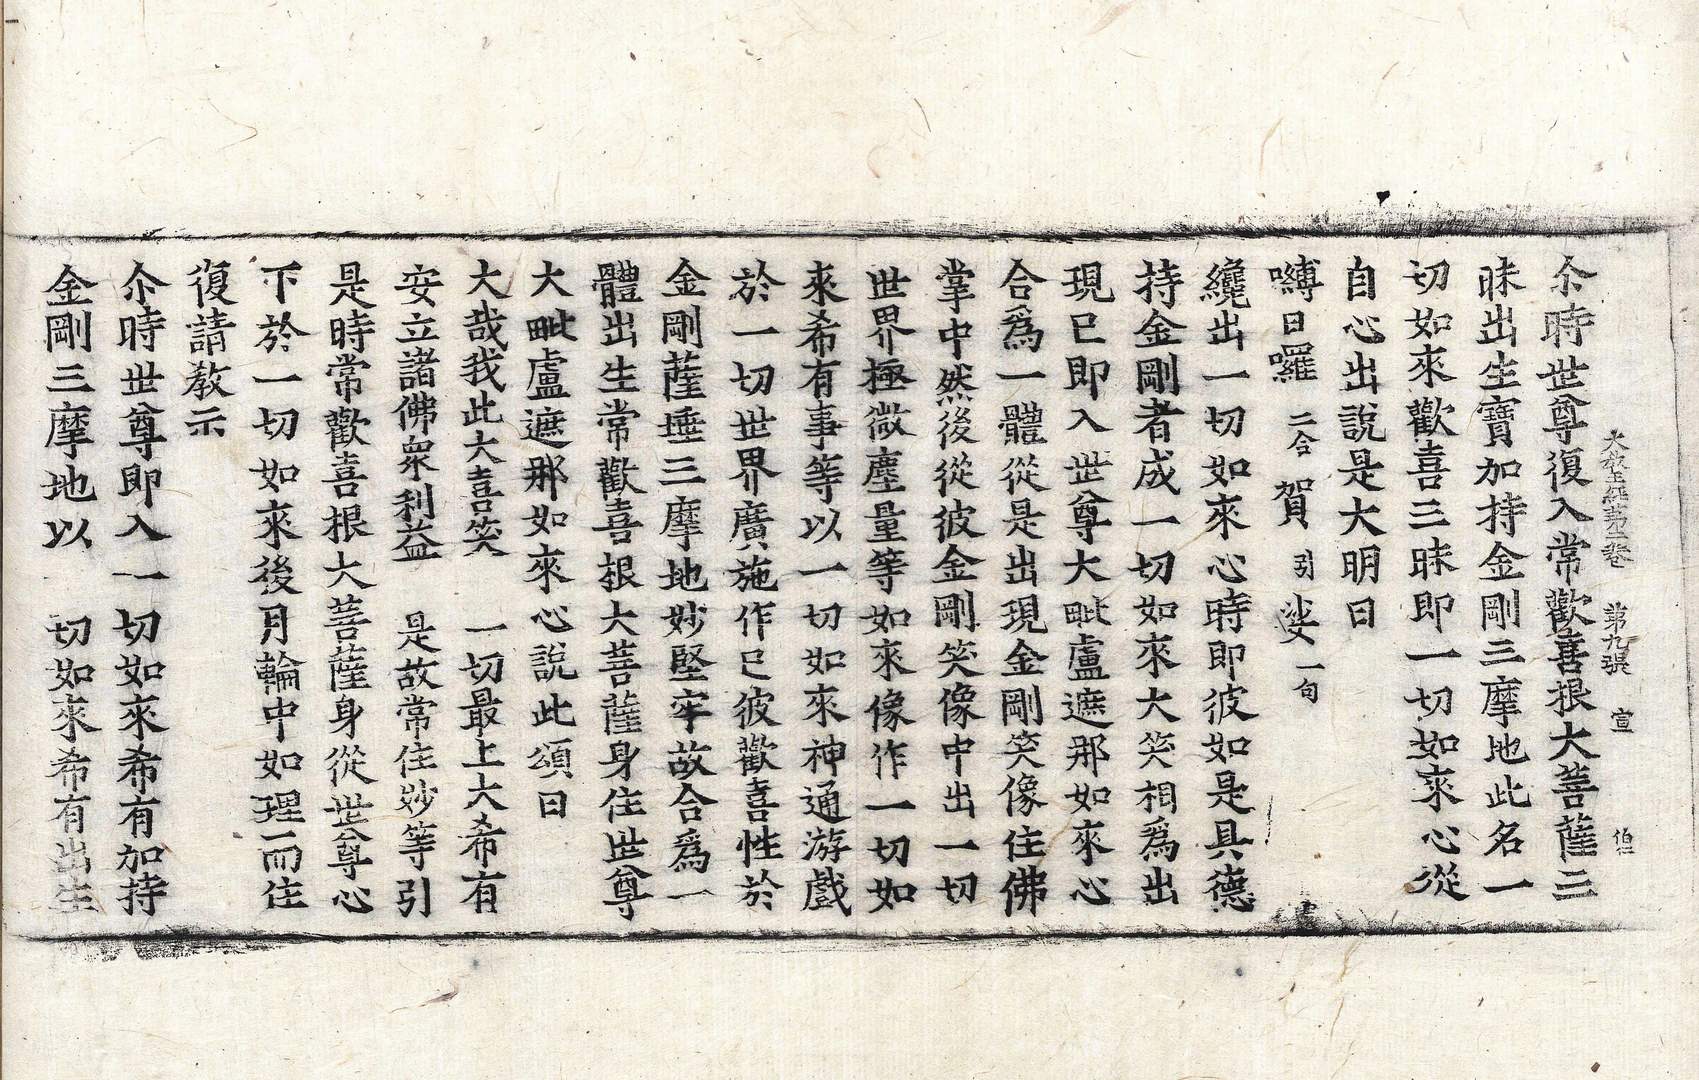 大教王經第二卷 第九張 宣 伯仁
尒時世尊復入常歡喜根大菩薩三
昧出生寶加持金剛三摩地此名一
切如來歡喜三昧即一切如來心從
自心出說是大明曰
嚩日囉 二合 賀 引 娑 一句
纔出一切如來心時即彼如是具德
持金剛者成一切如來大笑相爲出
現已即入世尊大毗盧遮那如來心
合爲一體從是出現金剛笑像住佛
掌中然後從彼金剛笑像中出一切
世界極微塵量等如來像作一切如
來希有事等以一切如來神通游戲
於一切世界廣施作已彼歡喜性於
金剛薩埵三摩地妙堅牢故合爲一
體出生常歡喜根大菩薩身住世尊
大毗盧遮那如來心說此頌曰
大哉我此大喜笑 一切最上大希有
安立諸佛衆利益 是故常住妙等引
是時常歡喜根大菩薩身從世尊心
下於一切如來後月輪中如理而住
復請教示
尒時世尊即入一切如來希有加持
金剛三摩地以 切如來希有出生